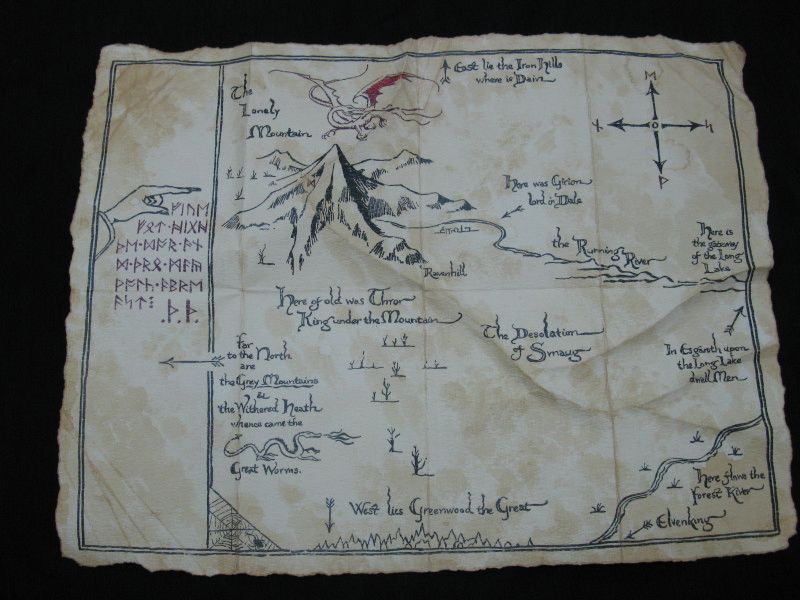 The
Lonely
Mountain
East lie the Iron Hills
where is Dain
Here was Girion
lord in Dale
the Running River
Here is
the gateway
of the Long
Lake
Ravenhill
Here of old was Thror
King under the Mountain
The Desolation
of Smaug
In Esgaroth upon
the Long Lake
dwell Men
Far
to the North
are
the Grey Mountains
&
the Withered Heath
whence came the
Great Worms.
West lies Greenwood the Great
Here flows the
forest River
Elvenking